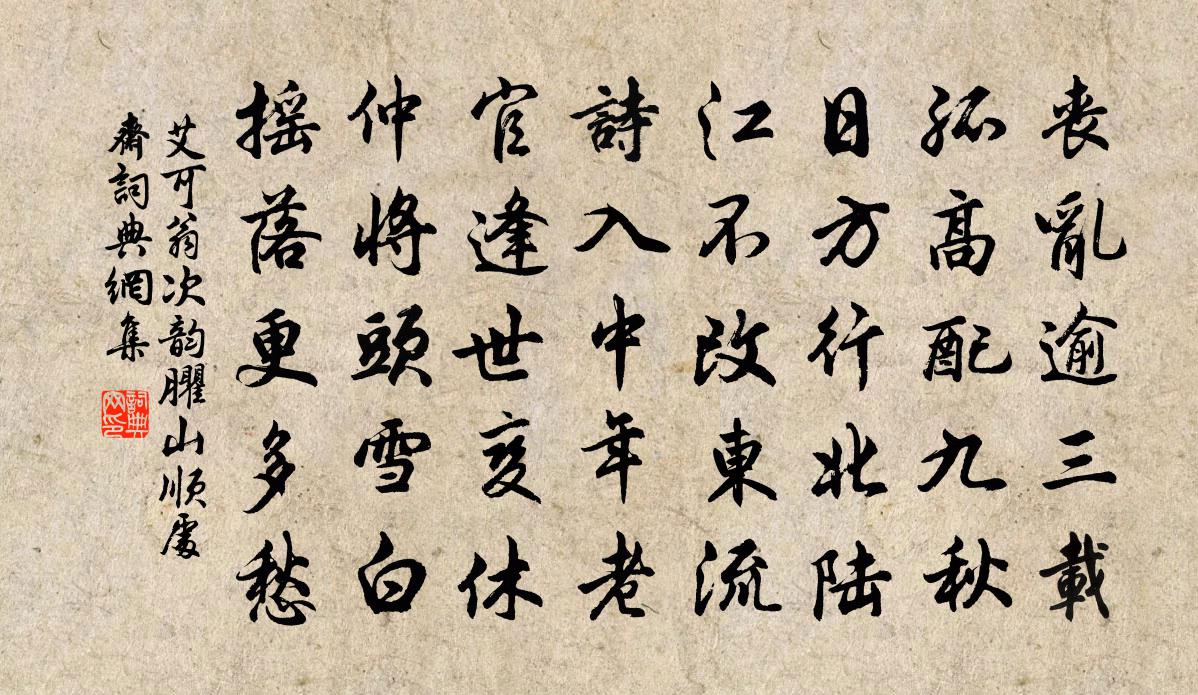 丧亂逾三載
孤高配九秋
日方行北陆
江不改東流
詩入中年老
官逢世变休
仲將頭雪白
摇落更多愁
艾可翁次韵臞山順處
齋詞典網集
詞典网印